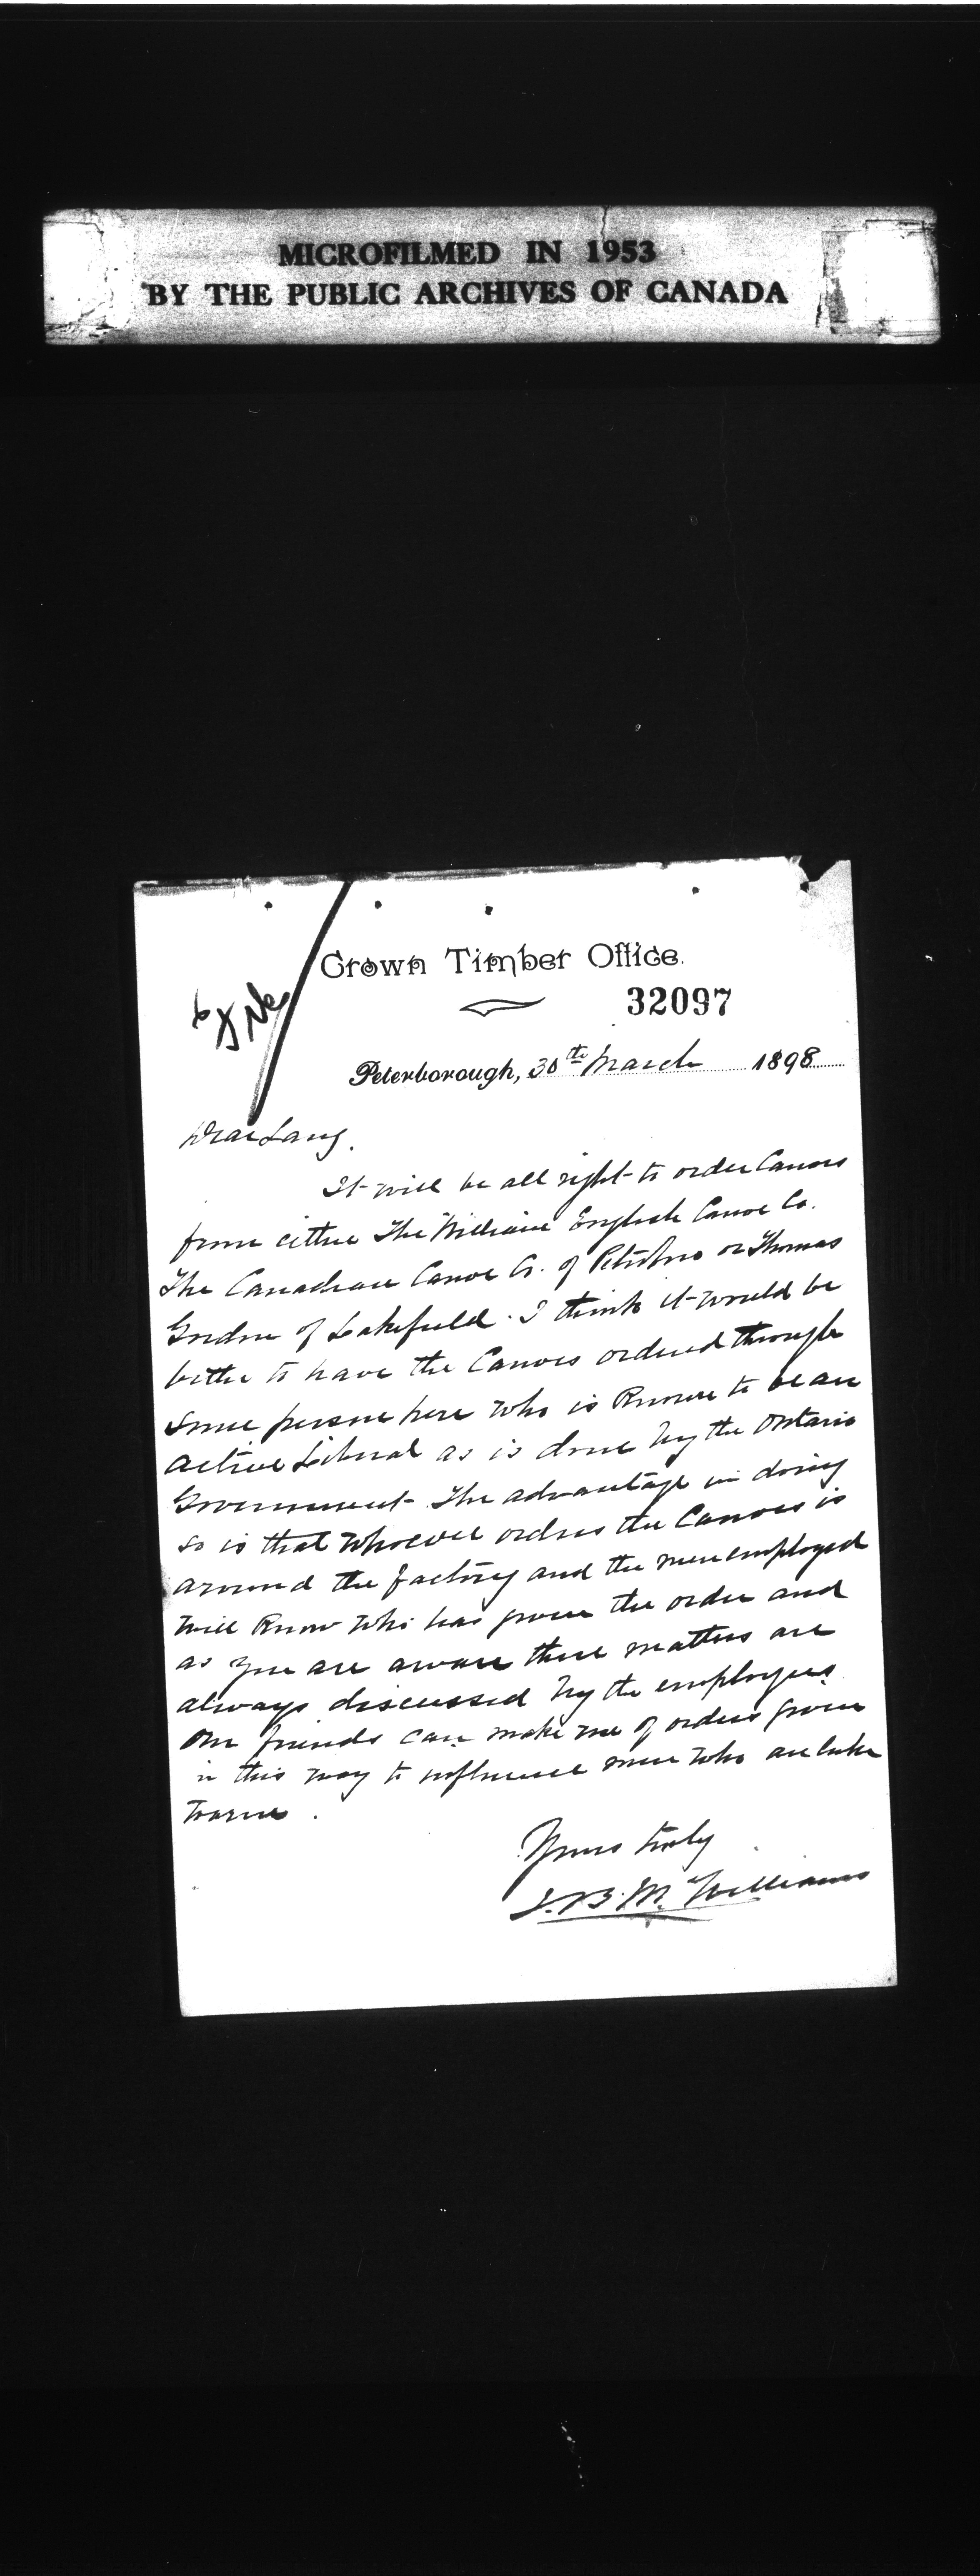 MICROFILMED IN 1953
BY THE PUBLIC ARCHIVES OF CANADA
Crown Timber Office.
32097
Peterborough, 30th March 1898
Dear Lang.
It will be all right to order Canoes
from either The William English Canoe Co.
The Canadian Canoe Co. of Peterboro or Thomas
Gordon of Lakefield. I think it would be
better to have the Canoes ordered through
some person here who is known to be an
active Liberal as is done by the Ontario
Government. The advantage in doing
so is that whoever orders the Canoes is
around the factory and the men employed
will know who has given the order and
as you are aware these matters are
always discussed by the employees.
Our friends can make use of orders given
in this way to influence men who are luke
warm.
Yours truly
J.B. McWilliams